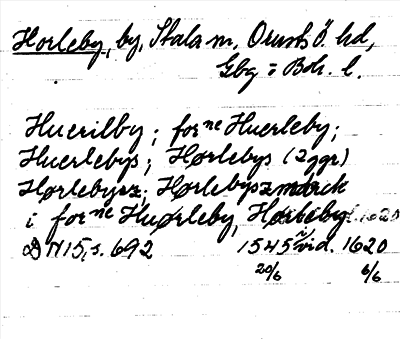 Horleby, by, Stala sn, Orusts ö. hd,
Gbg o Boh. l.
Huerilby; forne Huerleby;
Huerlebys; Hørlebys (2 ggr)
Hørlebysz; Hørlebysz marck
i forne Huørleby, Hørleby 1620
DN 15, s. 692 1545 vid. 1620
20/6 6/6